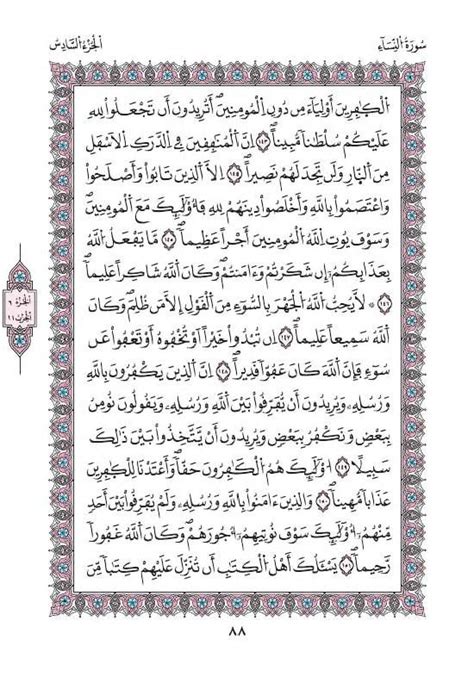 سُورَةُ النِّسَاءِ
اَلْجُزْءُ السَّادِسُ
اَ۬لْكٰ۪فِرِينَ أَوْلِيَآءَ مِن دُونِ اِ۬لْمُومِنِينَۖ أَتُرِيدُونَ أَن تَجْعَلُواْ لِلهِ
عَلَيْكُمْ سُلْطَٰناً مُّبِيناًۖ ١٤٣ اِنَّ اَ۬لْمُنَٰفِقِينَ فِے اِ۬لدَّرَكِ اِ۬لَاسْفَلِ
مِنَ اَ۬لنّ۪ارِ وَلَن تَجِدَ لَهُمْ نَصِيراًۖ ١٤٤ اِلَّا اَ۬لذِينَ تَابُواْ وَأَصْلَحُواْ
وَاعْتَصَمُواْ بِاللَّهِ وَأَخْلَصُواْ دِينَهُمْ لِلهِ فَأُوْلَٰٓئِكَ مَعَ اَ۬لْمُومِنِينَۖ
وَسَوْفَ يُوتِ اِ۬للَّهُ اُ۬لْمُومِنِينَ أَجْراً عَظِيماًۖ ١٤٥ مَّا يَفْعَلُ اُ۬للَّهُ
بِعَذَابِكُمُۥٓ إِن شَكَرْتُمْ وَءَامَنتُمْۖ وَكَانَ اَ۬للَّهُ شَاكِراً عَلِيماًۖ
١٤٦ ۞ لَّا يُحِبُّ اُ۬للَّهُ اُ۬لْجَهْرَ بِالسُّوٓءِ مِنَ اَ۬لْقَوْلِ إِلَّا مَن ظُلِمَۖ وَكَانَ
اَ۬للَّهُ سَمِيعاً عَلِيماًۖ ١٤٧ اِن تُبْدُواْ خَيْراً اَوْ تُخْفُوهُ أَوْ تَعْفُواْ عَن
سُوٓءٖ فَإِنَّ اَ۬للَّهَ كَانَ عَفُوّاٗ قَدِيراًۖ ١٤٨ اِنَّ اَ۬لذِينَ يَكْفُرُونَ بِاللَّهِ
وَرُسُلِهِۦ وَيُرِيدُونَ أَن يُّفَرِّقُواْ بَيْنَ اَ۬للَّهِ وَرُسُلِهِۦ وَيَقُولُونَ نُومِنُ
بِبَعْضٖ وَنَكْفُرُ بِبَعْضٖ وَيُرِيدُونَ أَن يَّتَّخِذُواْ بَيْنَ ذَٰلِكَ
سَبِيلاً ١٤٩ اُ۟وْلَٰٓئِكَ هُمُ اُ۬لْكَٰفِرُونَ حَقّاٗۖ وَأَعْتَدْنَا لِلْكٰ۪فِرِينَ
عَذَاباٗ مُّهِيناٗۖ ١٥٠ وَالذِينَ ءَامَنُواْ بِاللَّهِ وَرُسُلِهِۦ وَلَمْ يُفَرِّقُواْ بَيْنَ أَحَدٖ
مِّنْهُمُۥٓ أُوْلَٰٓئِكَ سَوْفَ نُوتِيهِمُۥٓ أُجُورَهُمْۖ وَكَانَ اَ۬للَّهُ غَفُوراٗ
رَّحِيماٗۖ ١٥١ يَسْـَٔلُكَ أَهْلُ اُ۬لْكِتَٰبِ أَن تُنَزِّلَ عَلَيْهِمْ كِتَٰباٗ مِّنَ
الجزء ٦
الحزب ١١
٨٨